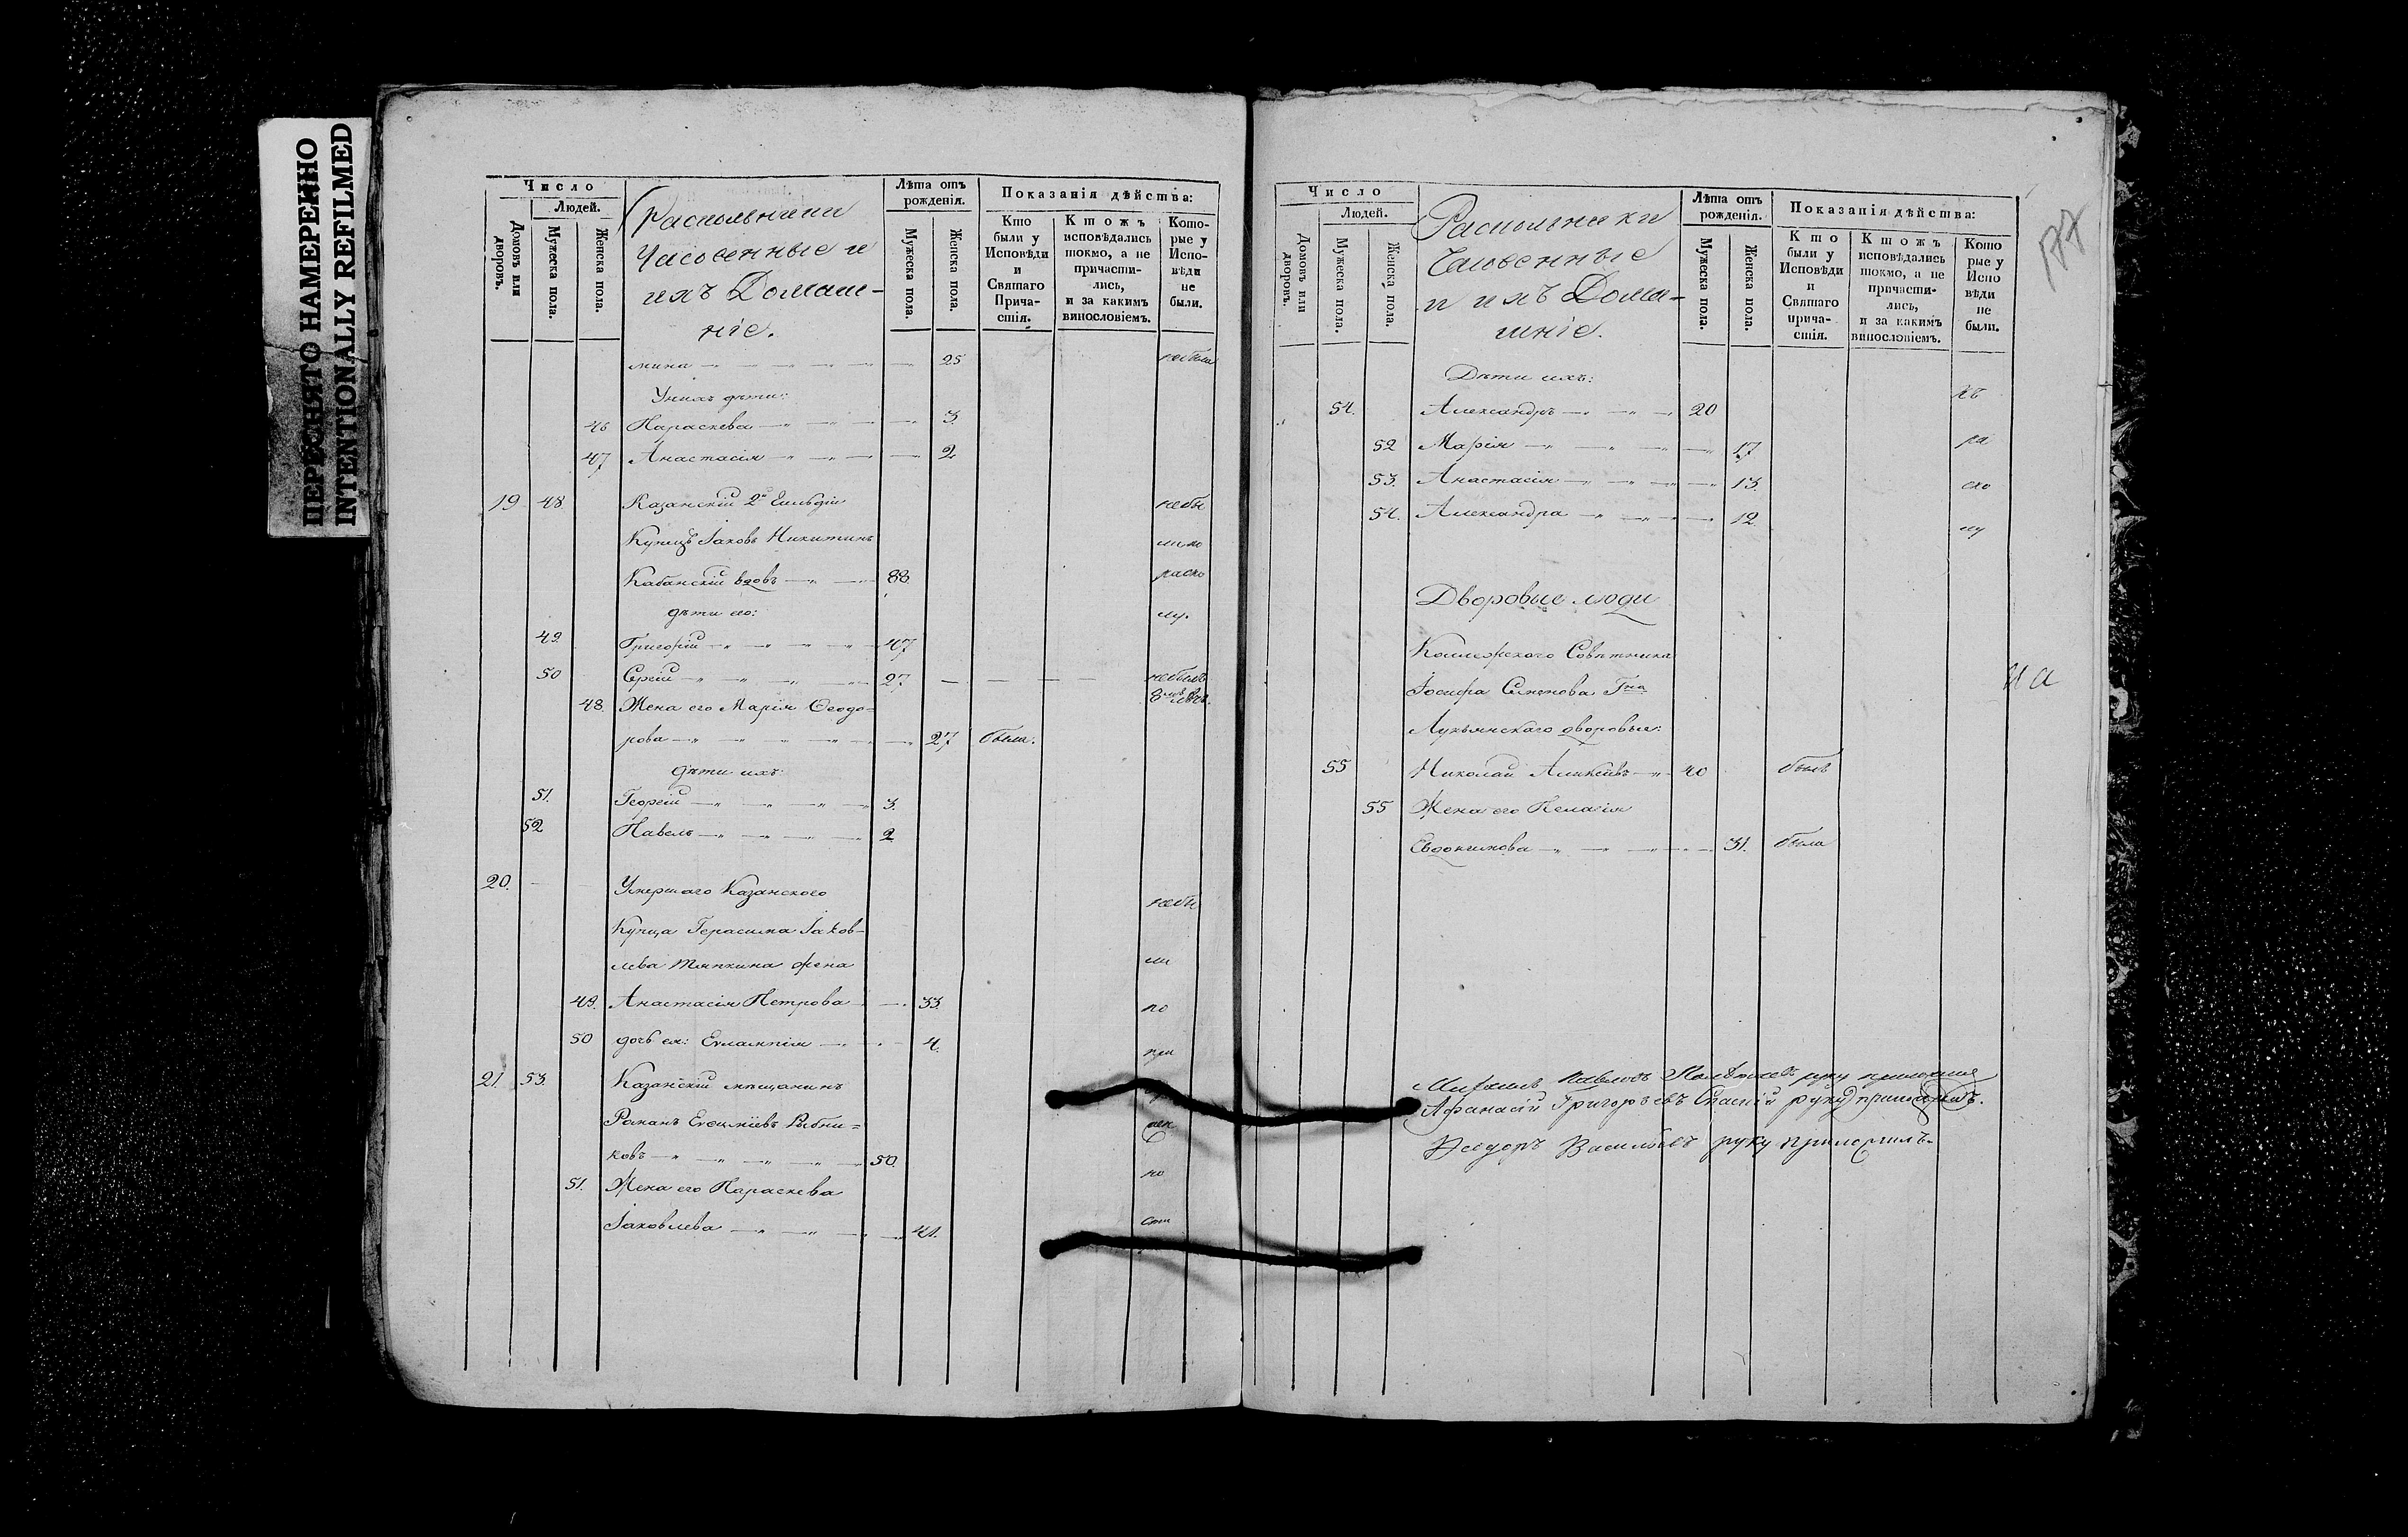 ПЕРЕСНЯТО НАМЕРЕННО
INTENTIONALLY REFILMED
Число
Людей.
Домовъ или дворовъ.
Мужеска пола.
Женска пола.
Раскольники
Часовенные и
ихъ Домаш-
ніе.
Лѣта отъ рожденія.
Мужеска пола.
Женска пола.
Показанія дѣйства:
Кто были у Исповѣди и Святаго Прича-стія.
Ктожъ исповѣдались токмо, а не причасти-лись, и за какимъ винословіемъ.
Кото-рые у Испо-вѣди не были.
мина 25 небыла
У нихъ дѣти:
46 Параскева 3.
47 Анастасія 2
19 48 Казанскій 2й Гильдіи небы
Купецъ Іаковъ Никитинъ ли по
Кабанскій вдовъ 88. раско
дѣти его: лу.
49. Григорій 47
50 Сергій 27 небылъ
48. Жена его Марія Ѳеодо-
рова 27 была.
дѣти ихъ:
51. Георгій 3.
52 Павелъ 2
20. Умершаго Казанского
небы
Купца Герасима Іаков-
лева Тяпкина жена ли
49. Анастасія Петрова 33. по
50 дочь ея: Евлампія 4.
21. 53. Казанскій мѣщанинъ
Романъ Евфиміевъ Рыбни=
ковъ 50.
51. Жена его Параскева но
Іаковлева 41. сти
Число
Людей.
Домовъ или дворовъ.
Мужеска пола.
Женска пола.
Раскольники
Часовенные
и ихъ Дома-
шніе.
Лѣта отъ рожденія.
Мужеска пола.
Женска пола.
Показанія дѣйства:
Кто были у Исповѣди и Святаго прича-стія.
Ктожъ исповѣдались токмо, а не причасти-лись, и за какимъ винословіемъ.
Кото рые у Испо вѣди не были.
177
Дѣти ихъ:
54. Александръ 20
52 Марія 17 ра
53. Анастасія 13. ско
54. Александра 12. лу
Дворовые люди
Коллежскаго Совѣтника
Іосифа Семенова Гна
Лукьянскаго дворовые:
55 Николай Алексѣевъ 40 былъ
55 Жена его Пелагія
Евдокимова 31. была
на
Павловъ руку приложилъ
Афанасій Григорьевъ Спаскій руку приложилъ.
Ѳеодоръ Васильевъ руку приложилъ.